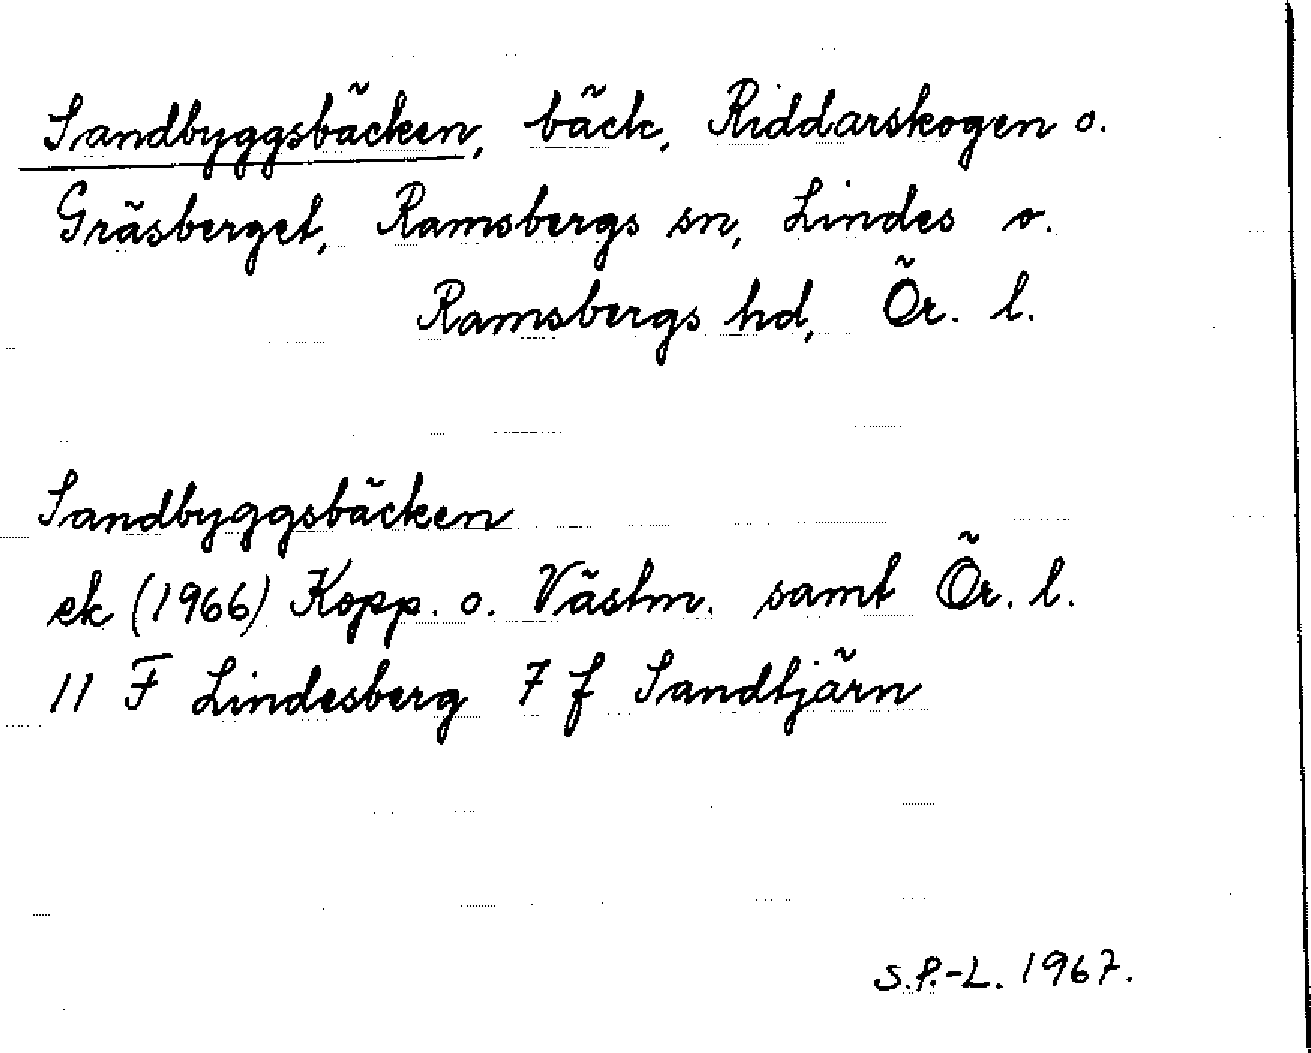 Sandbyggsbäcken, bäck, Riddarskogen o.
Gräsberget, Ramsbergs sn, Lindes o.
Ramsbergs hd, Ör. l.
Sandbyggsbäcken
ek (1966) Kopp. o. Västm. samt Ör. l.
11 F Lindesberg 7 f Sandtjärn
S.P.-L. 1967.